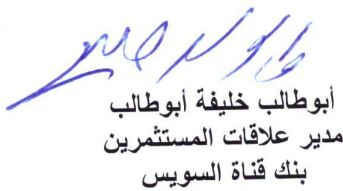 أبوطالب خليفة أبوطالب
مدير علاقات المستثمرين
بنك قناة السويس